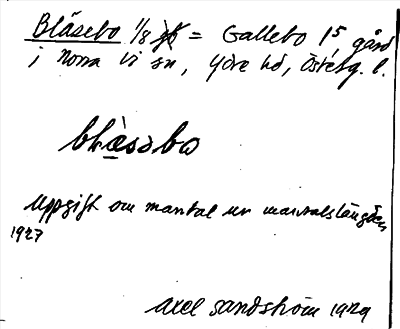 Blåsebo 1/8 = Gallebo 1⁵, gård
i Norra Vi sn, Ydre hd, Österg. l.
blæ̀səbo
Uppgift om mantal ur mantalslängden
1927
Axel Sandström 1929